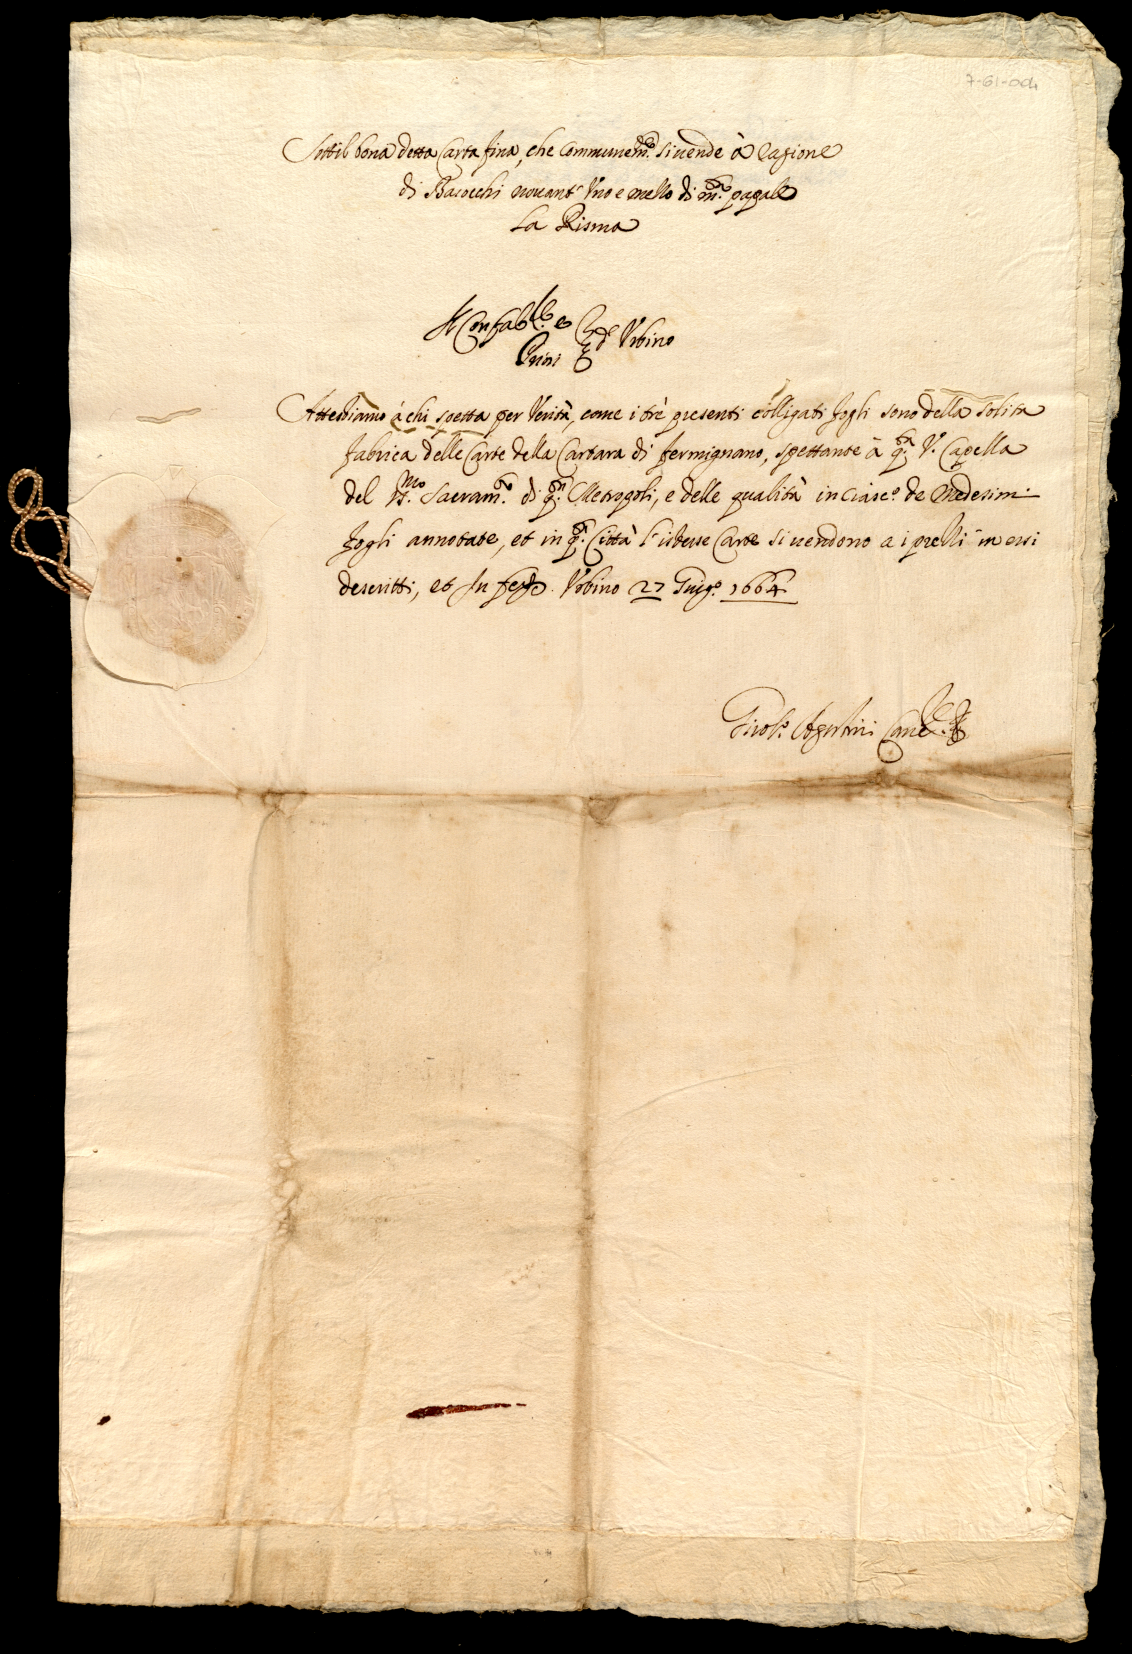 7-61-04
Sottil bona detta Carta fina, che Communem.te si uende à ragione
di Baiocchi nouant' Uno e mezzo di m.ta papale
La Risma
Il Confal.re e
Priori d' Urbino
Attestiamo à chi spetta per Verità, come i trè presenti colligati fogli sono della solita
fabrica delle Carte della Cartara di fermignano, spettante à q.sta V. Capella
del SS.mo Sacram.to di q.sta Metropoli, e delle qualità in ciasc.o de Medesimi
fogli annotate, et in q.sta Città l'istesse Carte si uendono a i prezzi in essi
descritti, et In fede. Urbino 27 Giug.o 1664
Girol.o Agostini Canc.re